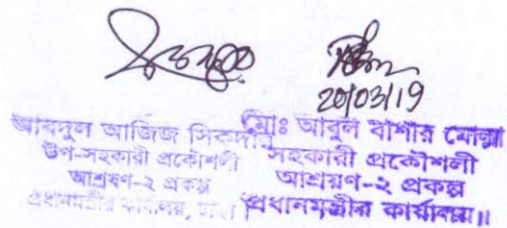 20/03/19
আবদুল আজিজ সিকদার
উপ-সহকারী প্রকৌশলী
আশ্রয়ণ-২ প্রকল্প
প্রধানমন্ত্রীর কার্যালয়, ঢাকা
মোঃ আবুল বাশার মোল্লা
সহকারী প্রকৌশলী
আশ্রয়ণ-২ প্রকল্প
প্রধানমন্ত্রীর কার্যালয়।।